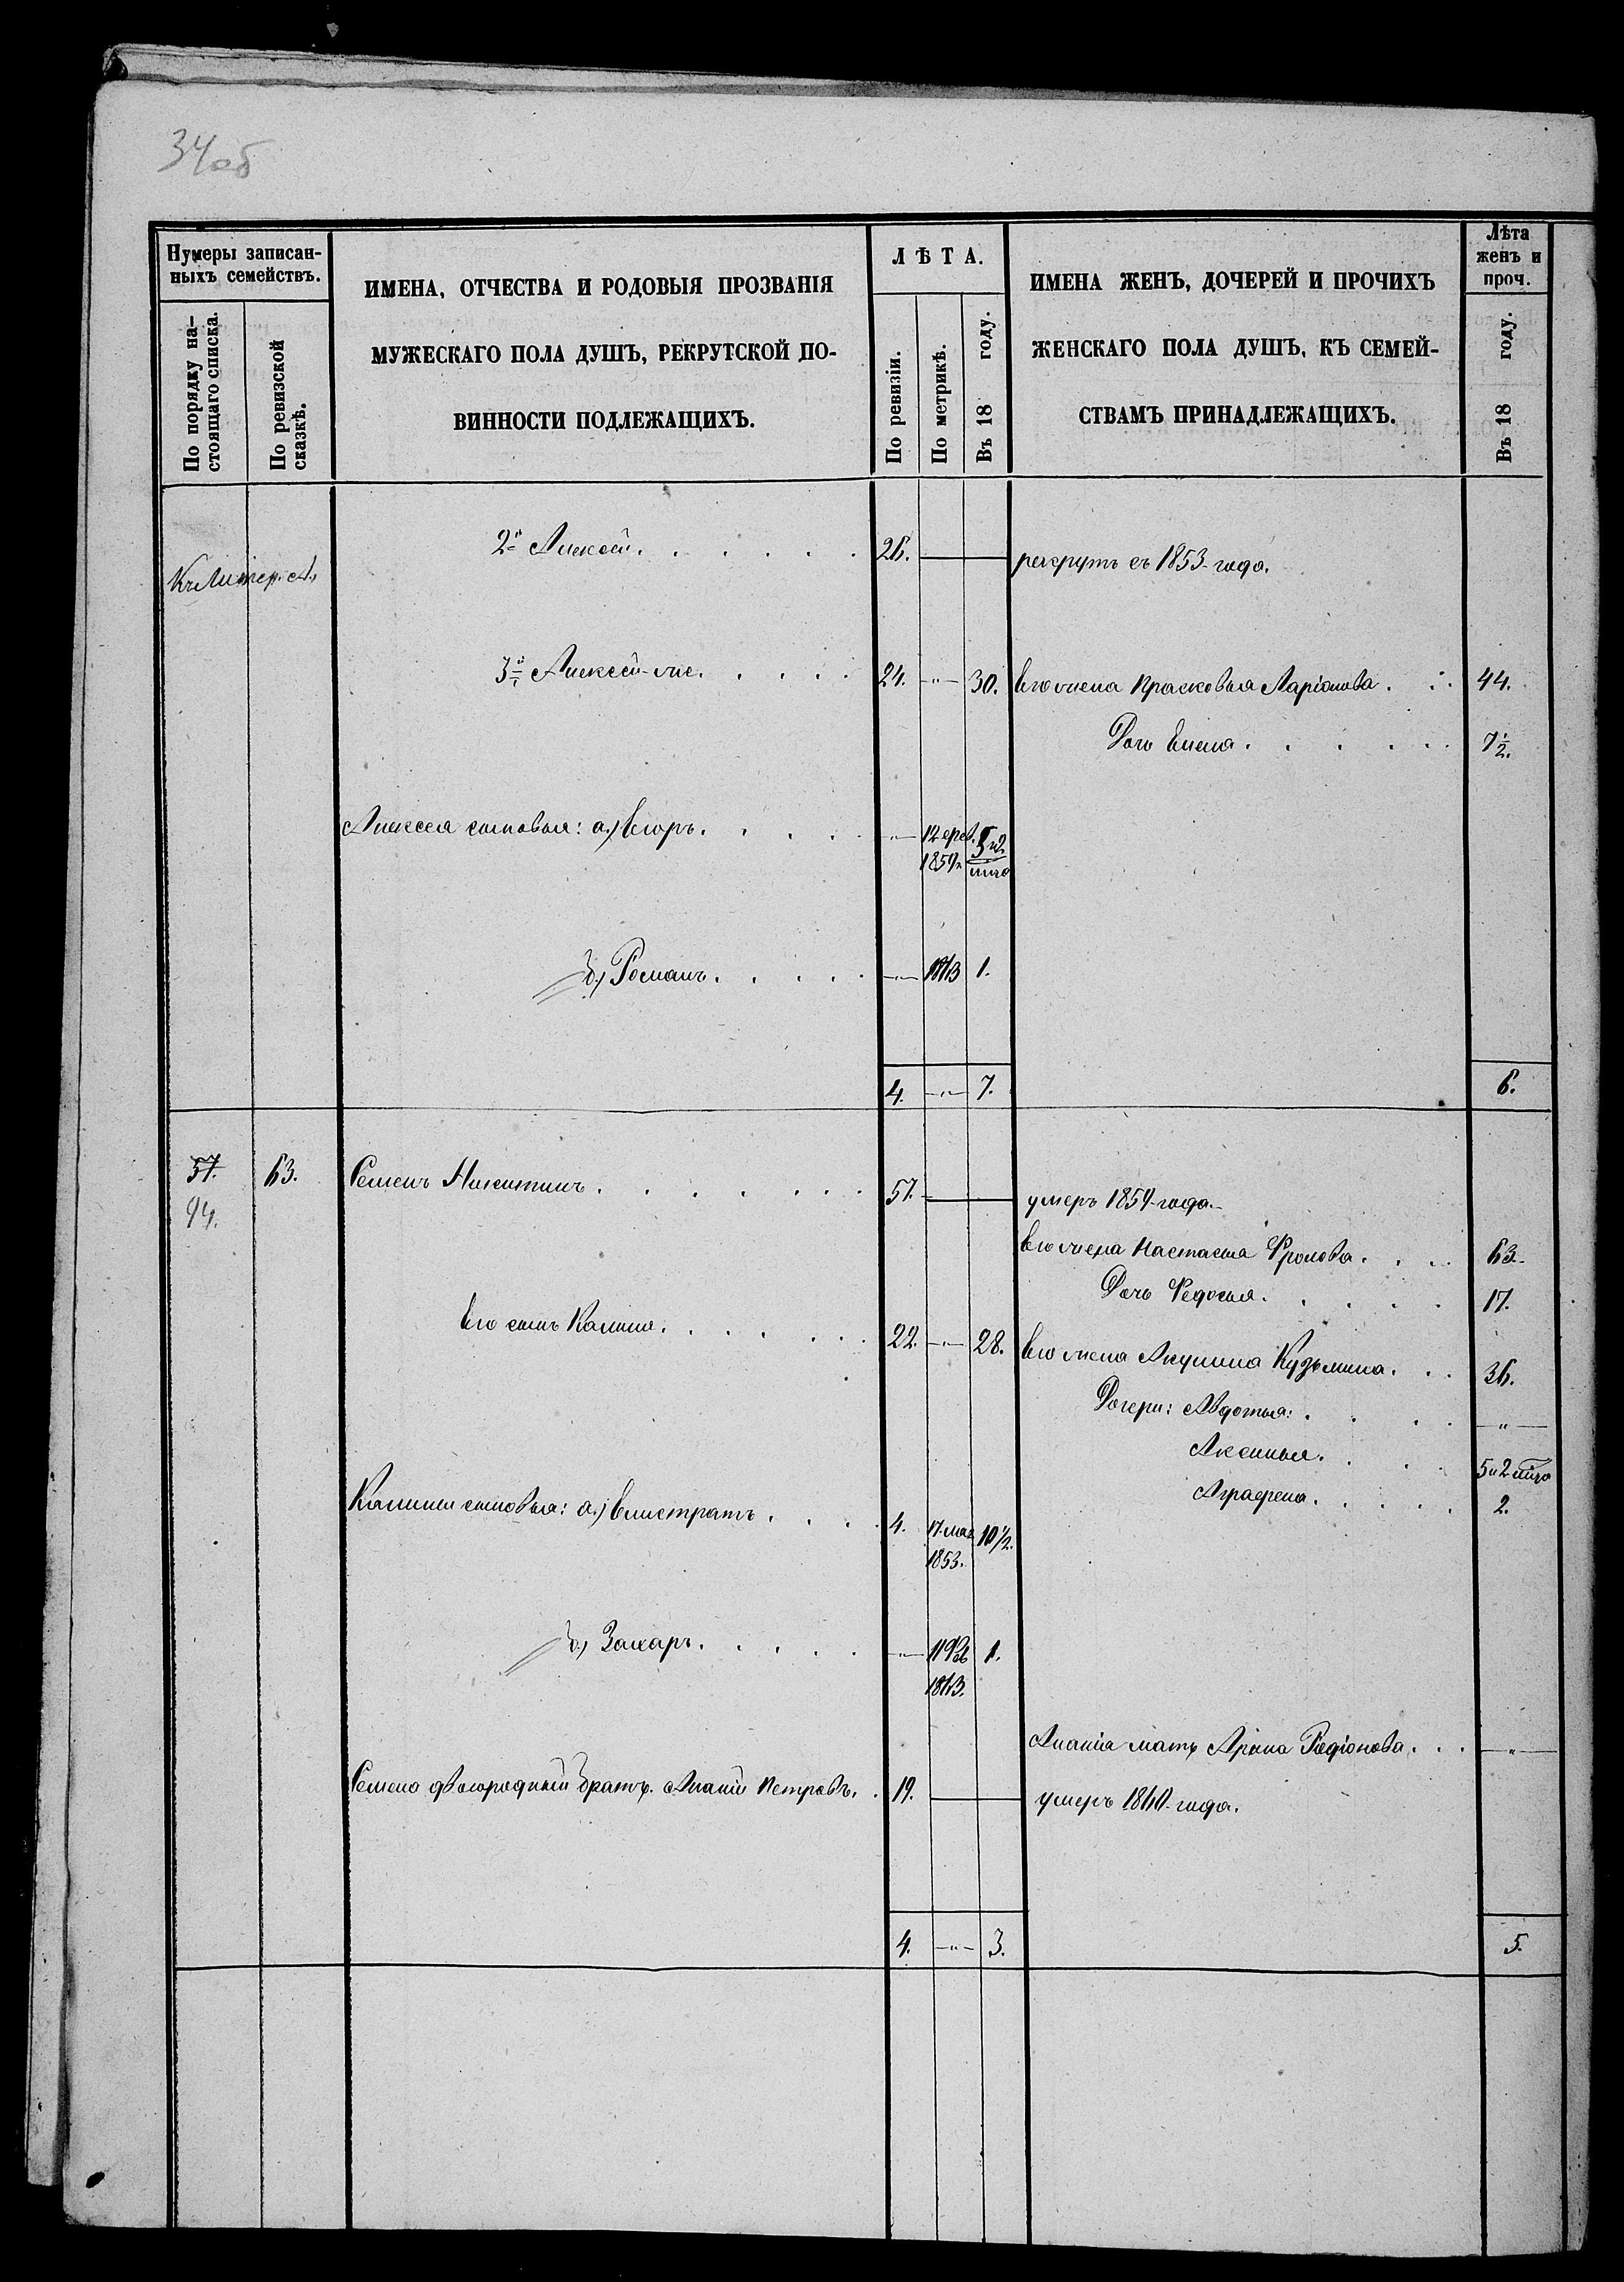 34об
Нумеры записан-
ныхъ семействъ.
По порядку на-
стоящаго списка.
По ревизской
сказкѣ.
ИМЕНА, ОТЧЕСТВА И РОДОВЫЯ ПРОЗВАНІЯ
МУЖЕСКАГО ПОЛА ДУШЪ, РЕКРУТСКОЙ ПО-
ВИННОСТИ ПОДЛЕЖАЩИХЪ.
ЛѢТА.
По ревизіи.
По метрикѣ.
Въ 18 году.
ИМЕНА ЖЕНЪ, ДОЧЕРЕЙ И ПРОЧИХЪ
ЖЕНСКАГО ПОЛА ДУШЪ, КЪ СЕМЕЙ-
СТВАМЪ ПРИНАДЛЕЖАЩИХЪ.
Лѣта
женъ и
проч.
Въ 18 году.
Къ Литер. А.
2й Алексѣй. 26. рекрутъ съ 1853 года.
3й Алексѣй-же. 24. " 30. Его жена Прасковья Ларіонова. 44.
Дочь Елена. 7 1/2.
Алексея сыновья: а.) Егоръ. " 12 1859 5
б.) Романъ. " 1863 1.
4. " 7. 6.
57. 63. Семенъ Никитинъ. 57. умеръ 1859 года.
94.
Его жена Настасья Фролова. 63.
Дочь Федосья. 17.
Его сынъ Калина. 22. " 28. Его жена Акулина Кузьмина. 36.
Дочери: Авдотья: "
Аксинья. 5 и 2
Аграфена. 2.
Калины сыновья: а.) Елистратъ. 4. 17 мая 10 1/2.
1853.
б.) Захаръ. " 1.
1863.
Ананія мать Арина Радіонова. "
Семена двоюродный братъ Ананій Петровъ. 19. умеръ 1860 года.
4. " 3. 5.